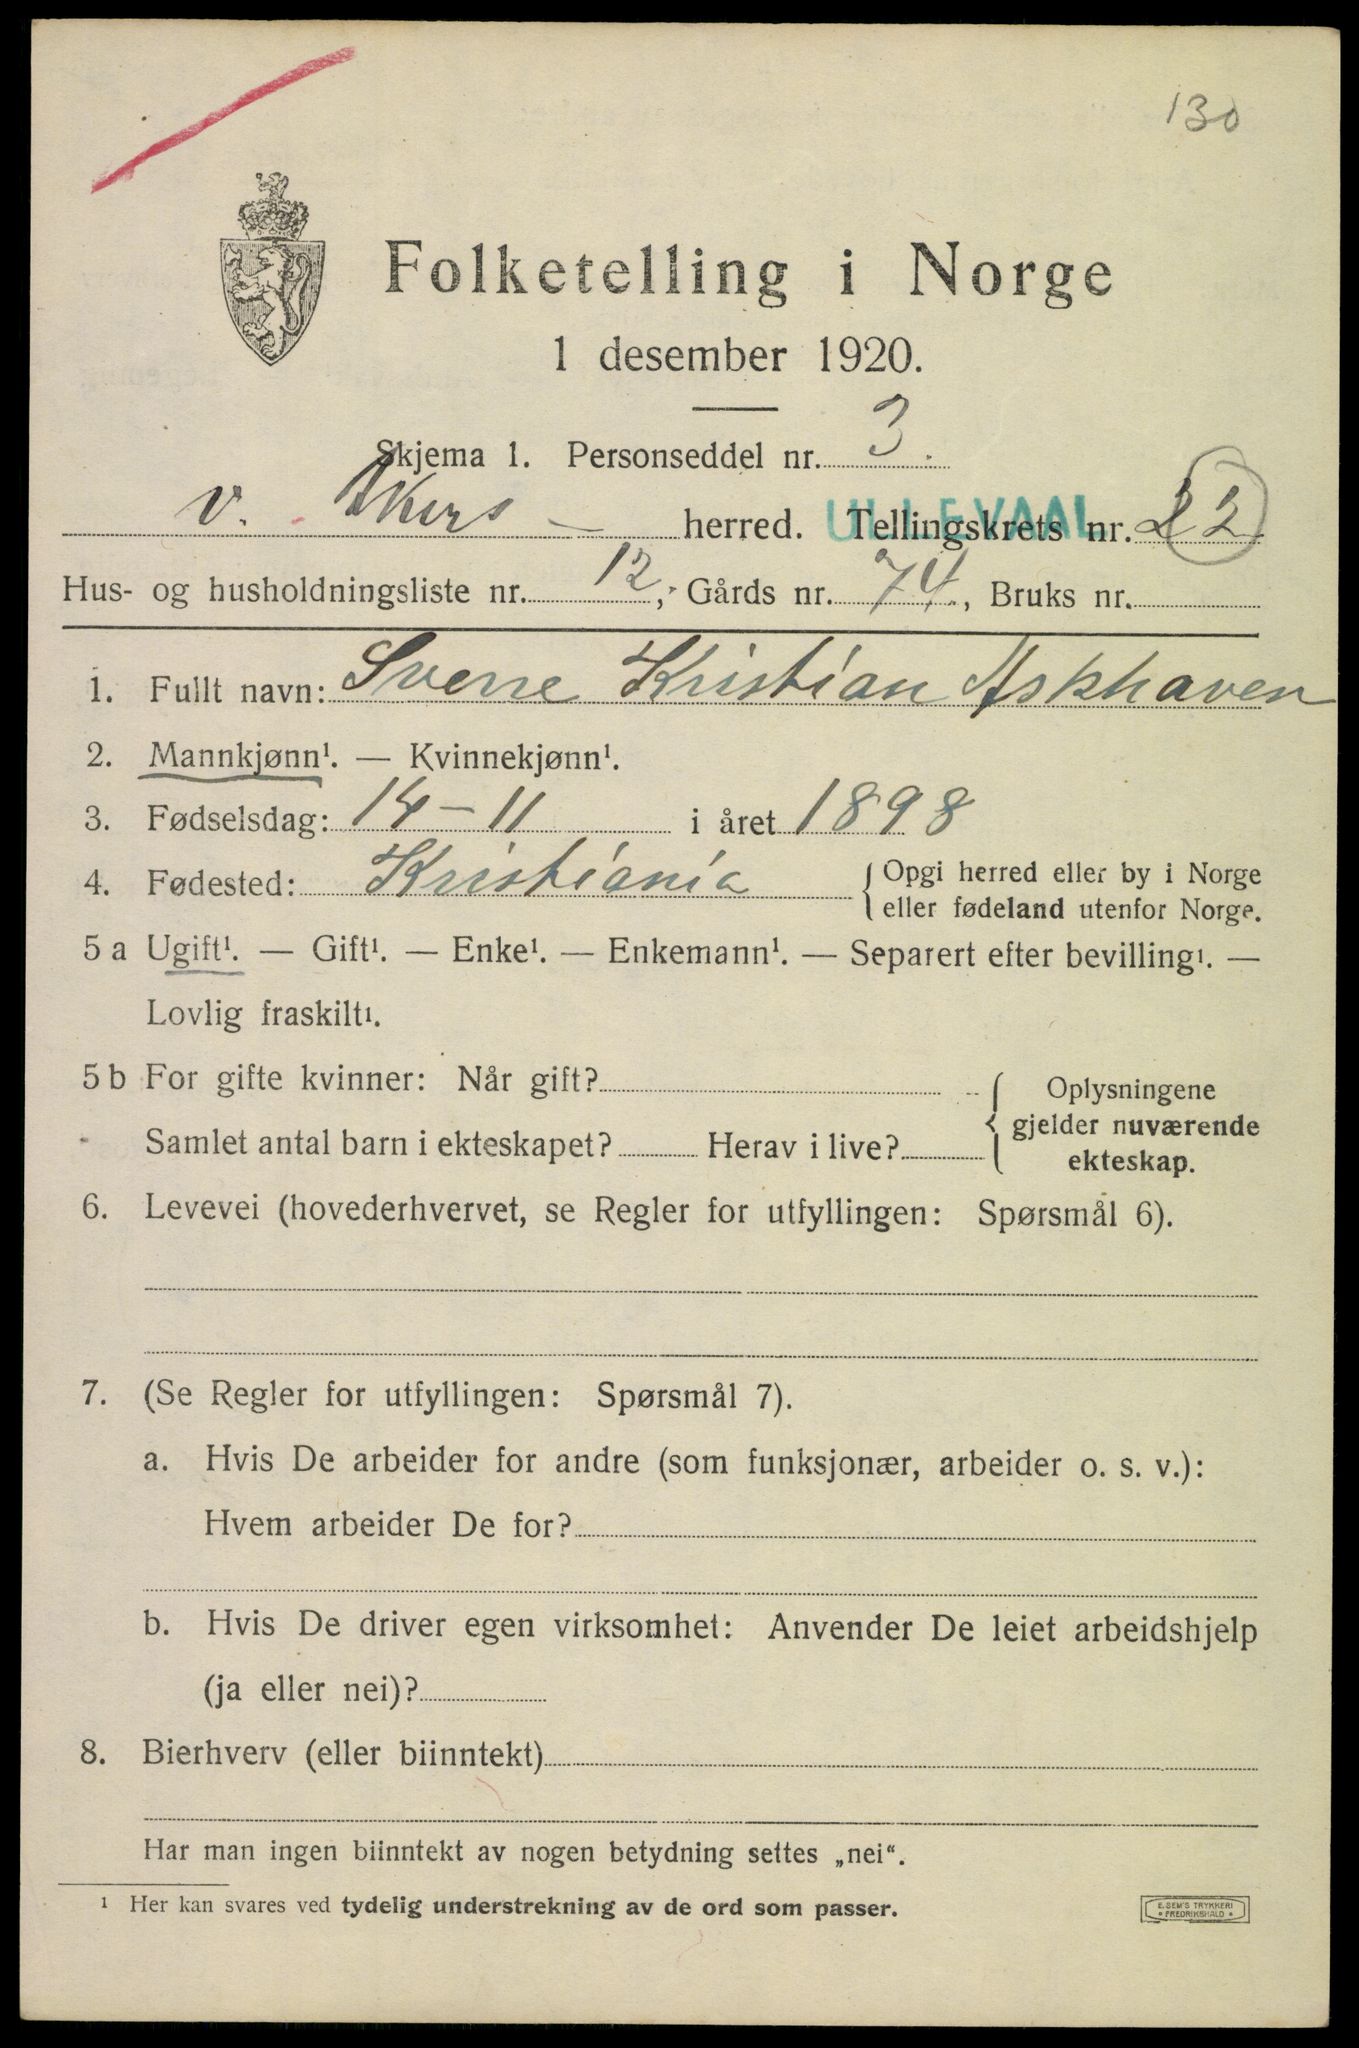 130
Folketelling i Norge
1 desember 1920.
Skjema 1. Personseddel nr. 3.
V. Akers — herred. ULLEVAAL Tellingskrets nr. 22
Hus- og husholdningsliste nr. 12, Gårds nr. 74, Bruks nr.
1. Fullt navn: Sverre Kristian Askhaven
2. Mannkjønn¹. — Kvinnekjønn¹.
3. Fødselsdag: 14-11 i året 1898
4. Fødested: Kristiania { Opgi herred eller by i Norge
eller fødeland utenfor Norge.
5 a Ugift¹. — Gift¹. — Enke¹. — Enkemann¹. — Separert efter bevilling¹. —
Lovlig fraskilt¹.
5 b For gifte kvinner: Når gift? { Oplysningene
gjelder nuværende
Samlet antal barn i ekteskapet? Herav i live?
ekteskap.
6. Levevei (hovederhvervet, se Regler for utfyllingen: Spørsmål 6).
7. (Se Regler for utfyllingen: Spørsmål 7).
a. Hvis De arbeider for andre (som funksjonær, arbeider o. s. v.):
Hvem arbeider De for?
b. Hvis De driver egen virksomhet: Anvender De leiet arbeidshjelp
(ja eller nei)?
8. Bierhverv (eller biinntekt)
Har man ingen biinntekt av nogen betydning settes „nei“.
¹ Her kan svares ved tydelig understrekning av de ord som passer.
E. SEM'S TRYKKERI
• FREDRIKSHALD •